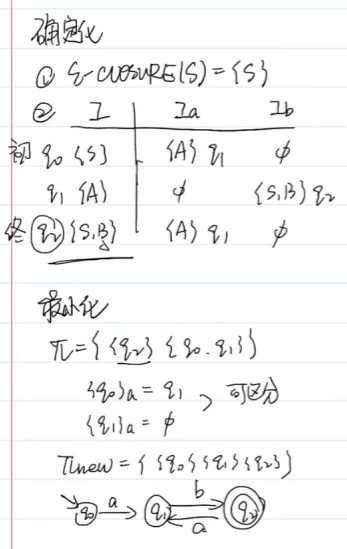 确定化
① ε-CLOSURE(S)={S}
② I Ia Ib
初 q0 {S} {A} q1 ϕ
q1 {A} ϕ {S,B} q2
终 q2 {S,B} {A} q1 ϕ
最小化
π={ {q2} {q0,q1} }
{q0}a = q1
{q1}a = ϕ
可区分
πnew = { {q0} {q1} {q2} }
q0 a q1 b a q2